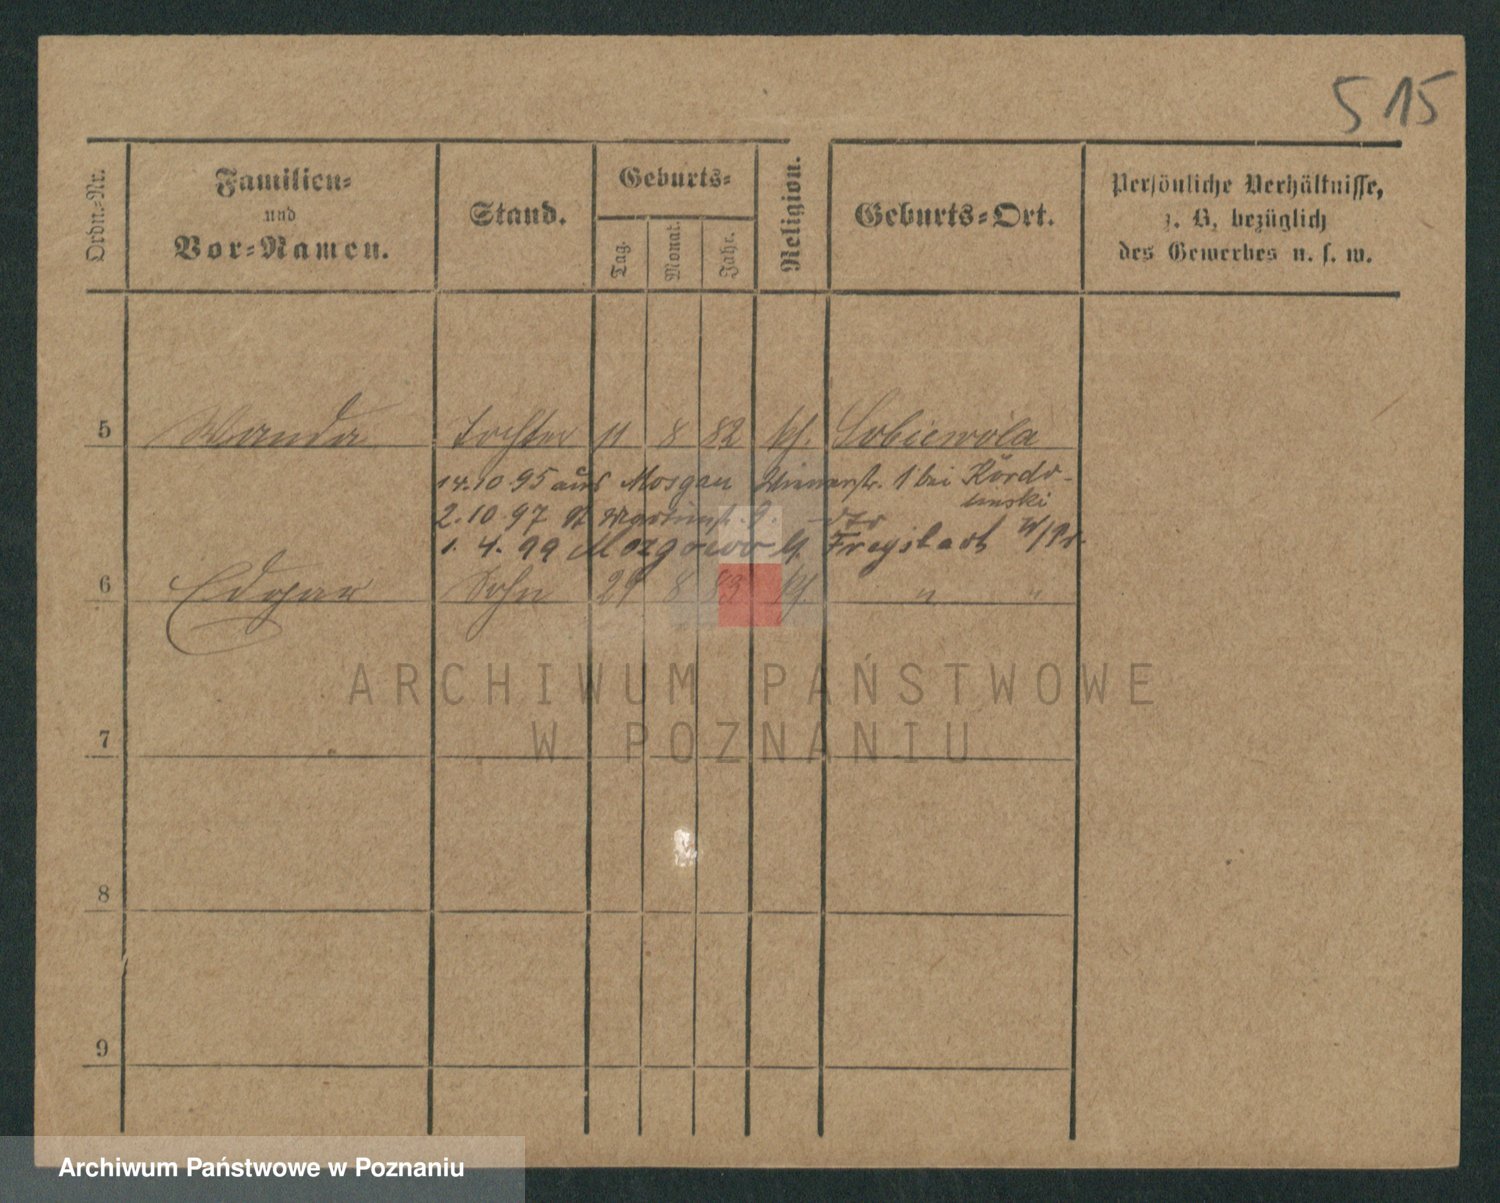 515
Ordn.-Nr.
Familien-
und
Vor-Namen.
Stand.
Geburts-
Tag.
Monat.
Jahr.
Religion.
Geburts-Ort.
Persönliche Verhältnisse,
z. B. bezüglich
des Gewerbes u. s. w.
5 Wanda Tochter 11 8 82 kf. Sobiewola
14.10.95 aus Mosgau 1 bei
2.10.97 St Martinstr.
1. 4. 99 Mozgowo Freystadt W/Pr.
6 Edgar Sohn 29 8 83 kf. " "
ARCHIWUM PAŃSTWOWE
W POZNANIU
7
8
9
Archiwum Państwowe w Poznaniu